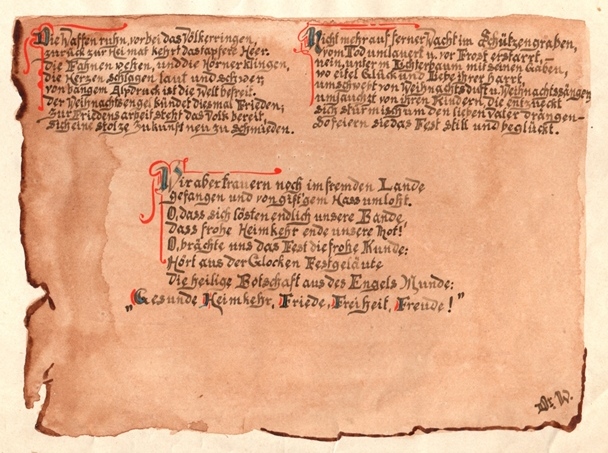 Die Waffen ruhn, vorbei das Völkerringen,
zurück zur Heimat kehrt das tapfere Heer.
die Fahnen wehen, und die Hörner klingen,
die Herzen schlagen laut und schwer,
von bangem Alpdruck ist die Welt befreit.
der Weihnachtsengel kündet diesmal Frieden;
zur Friedensarbeit steht das Volk bereit,
sich eine stolze Zukunft neu zu schmieden.
Nicht mehr auf ferner Wacht im Schützengraben,
vom Tod umlauert u. vor Frost erstarrt, –
nein, unter'm Lichterbaum mit seinen Gaben,
wo eitel Glück und Liebe ihrer harrt,
umschwebt von Weihnachtsduft u. Weihnachtssängen
umjauchzt von ihren Kindern, die entzückt
sich stürmisch um den lieben Vater drängen –
So feiern sie das Fest still und beglückt.
Wir aber trauern noch im fremden Lande
gefangen und von gift'gem Hass umloht.
O, dass sich lösten endlich unsere Bande,
dass frohe Heimkehr ende unsere Not!
O, brächte uns das Fest die frohe Kunde:
Hört aus der Glocken Festgeläute
die heilige Botschaft aus des Engels Munde:
„Gesunde Heimkehr, Friede, Freiheit, Freude!"
Dr. W.